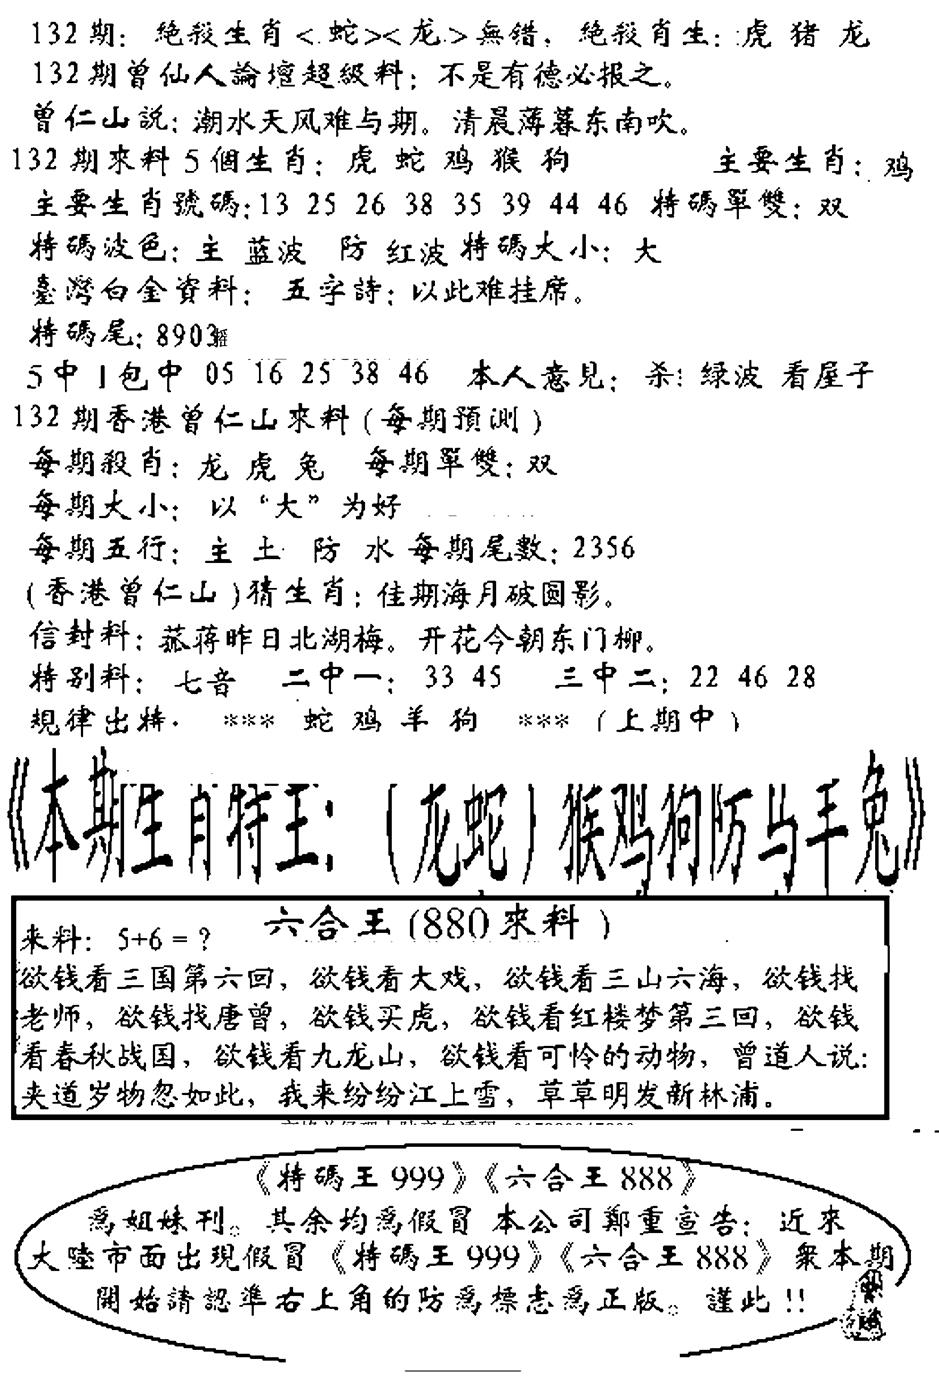 132期: 絶殺生肖<蛇><龙>無錯, 絶殺肖生:虎 猪 龙
132期曾仙人論壇超級料: 不是有德必报之。
曾仁山説: 潮水天风难与期。清晨薄暮东南吹。
132期來料5個生肖: 虎 蛇 鸡 猴 狗 主要生肖: 鸡
主要生肖號碼:13 25 26 38 35 39 44 46 特碼單雙: 双
特碼波色: 主 蓝波 防 红波 特碼大小: 大
臺灣白金資料: 五字詩: 以此难挂席。
特碼尾: 8903
5中1包中 05 16 25 38 46 本人意見: 杀: 绿波 看屋子
132期香港曾仁山來料(每期預測)
每期殺肖: 龙 虎 兔 每期單雙: 双
每期大小: 以“大”为好
每期五行: 主 土 防 水 每期尾數: 2356
(香港曾仁山)猜生肖: 佳期海月破圆影。
信封料: 菰蒋昨日北湖梅。开花今朝东门柳。
特别料: 七音 二中一: 33 45 三中二: 22 46 28
規律出特. *** 蛇 鸡 羊 狗 *** (上期中)
《本期生肖特王: (龙蛇)猴鸡狗防马羊兔》
六合王(880來料)
来料: 5+6=?
欲钱看三国第六回, 欲钱看大戏, 欲钱看三山六海, 欲钱找
老师, 欲钱找唐曾, 欲钱买虎, 欲钱看红楼梦第三回, 欲钱
看春秋战国, 欲钱看九龙山, 欲钱看可怜的动物, 曾道人说:
夹道岁物忽如此, 我来纷纷江上雪, 草草明发新林浦。
《特碼王999》《六合王888》
爲姐妹刊。其余均爲假冒 本公司鄭重宣告: 近來
大陸市面出現假冒《特碼王999》《六合王888》衆本期
開始請認準右上角的防爲標志爲正版。謹此!!